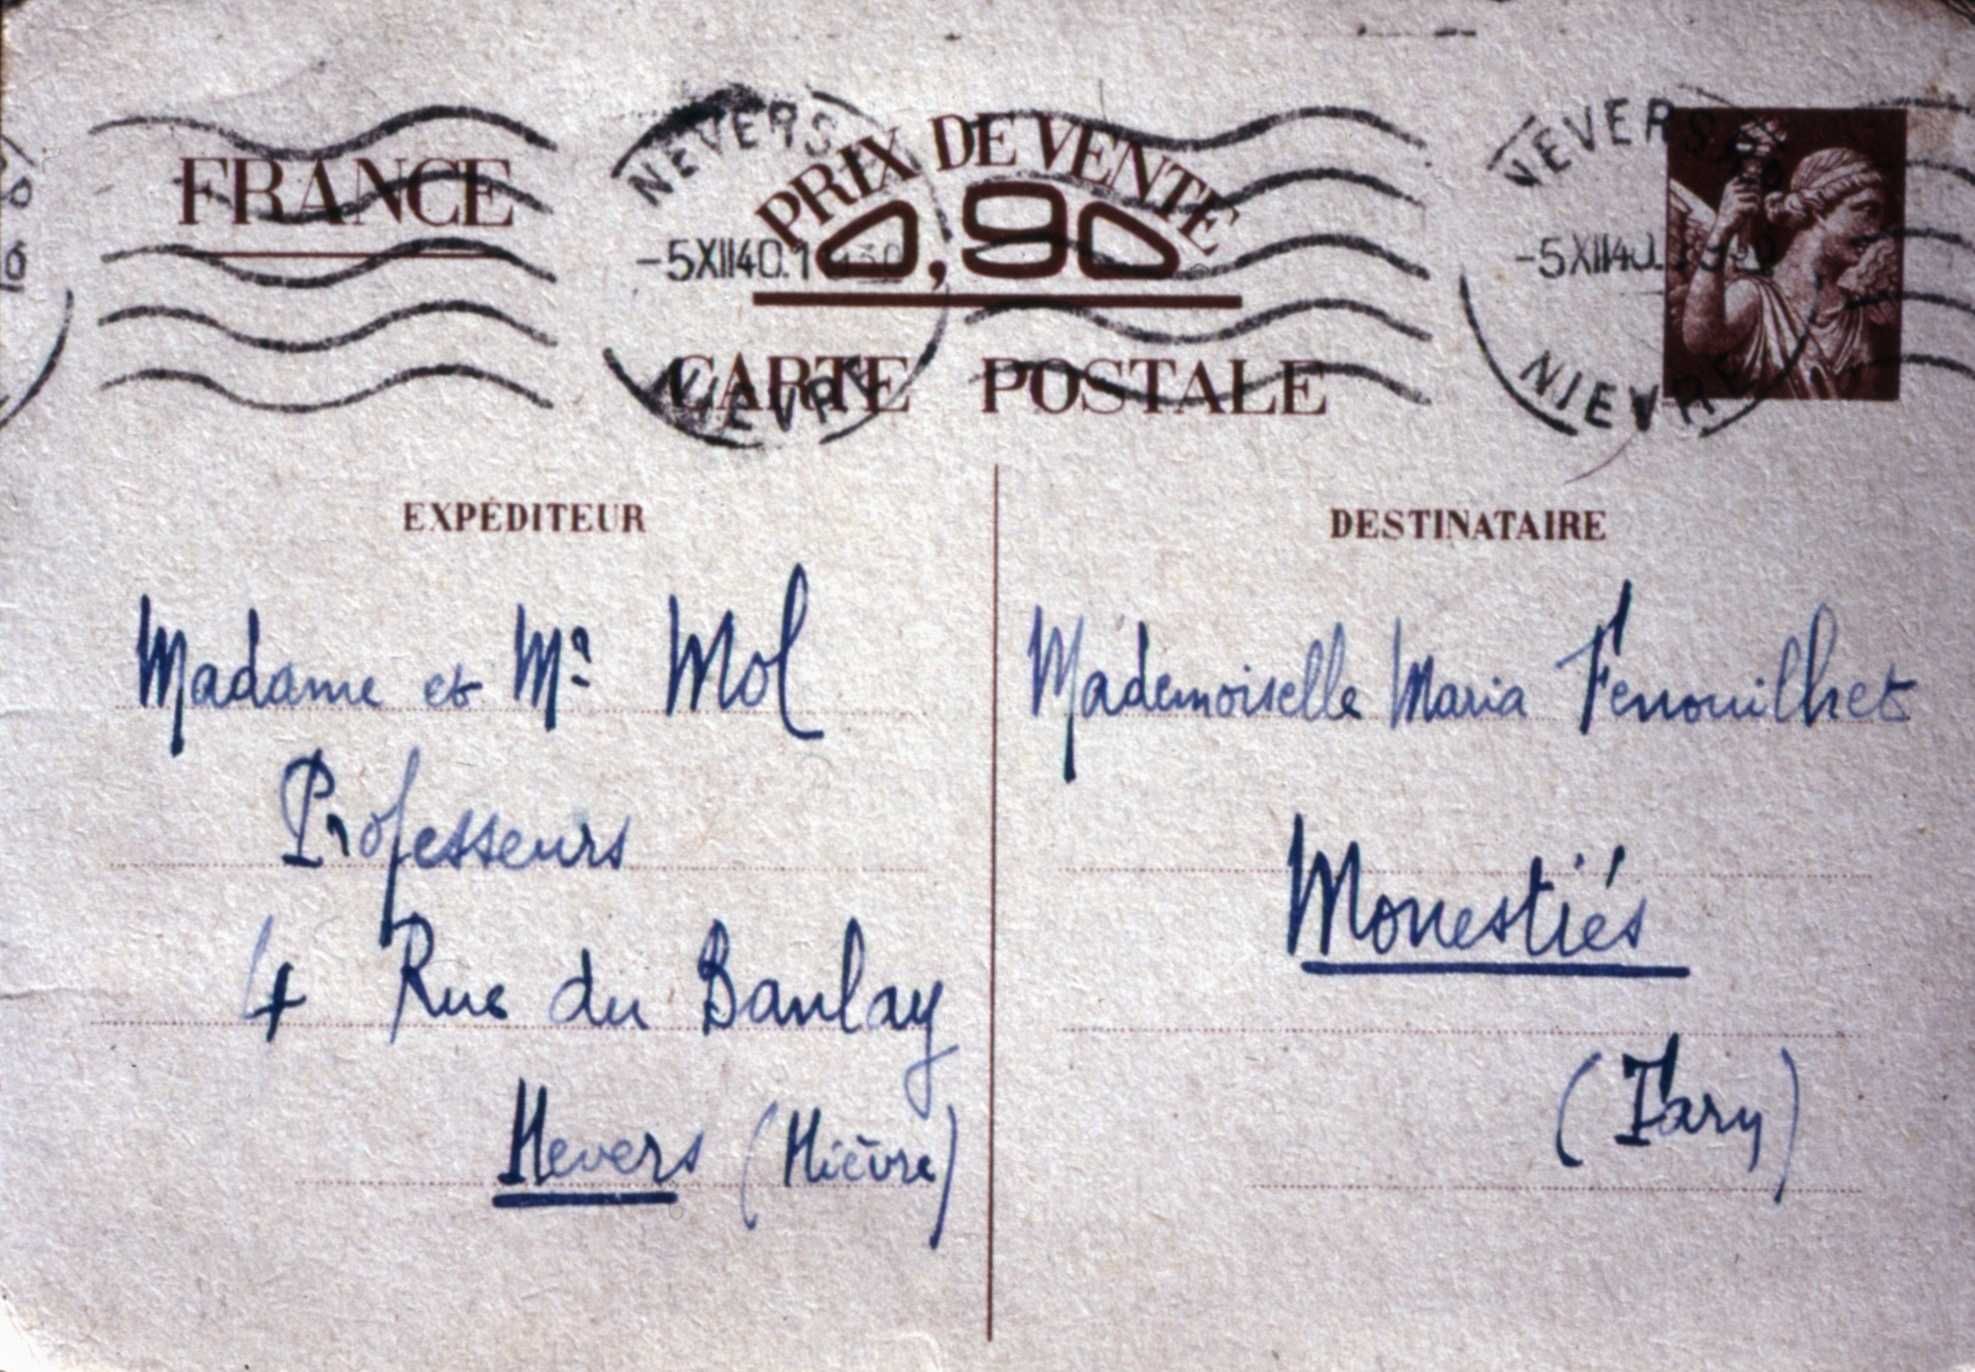 NEVERS
NEVERS
FRANCE
PRIX DE VENTE
0,90
-5XII40.
-5XII40.
CARTE POSTALE
NIEVRE
NIEVRE
EXPÉDITEUR
Madame et Mr Mol
Professeurs
4 Rue du Banlay
Nevers (Nièvre)
DESTINATAIRE
Mademoiselle Maria Fenouilhet
Monestiés
(Tarn)